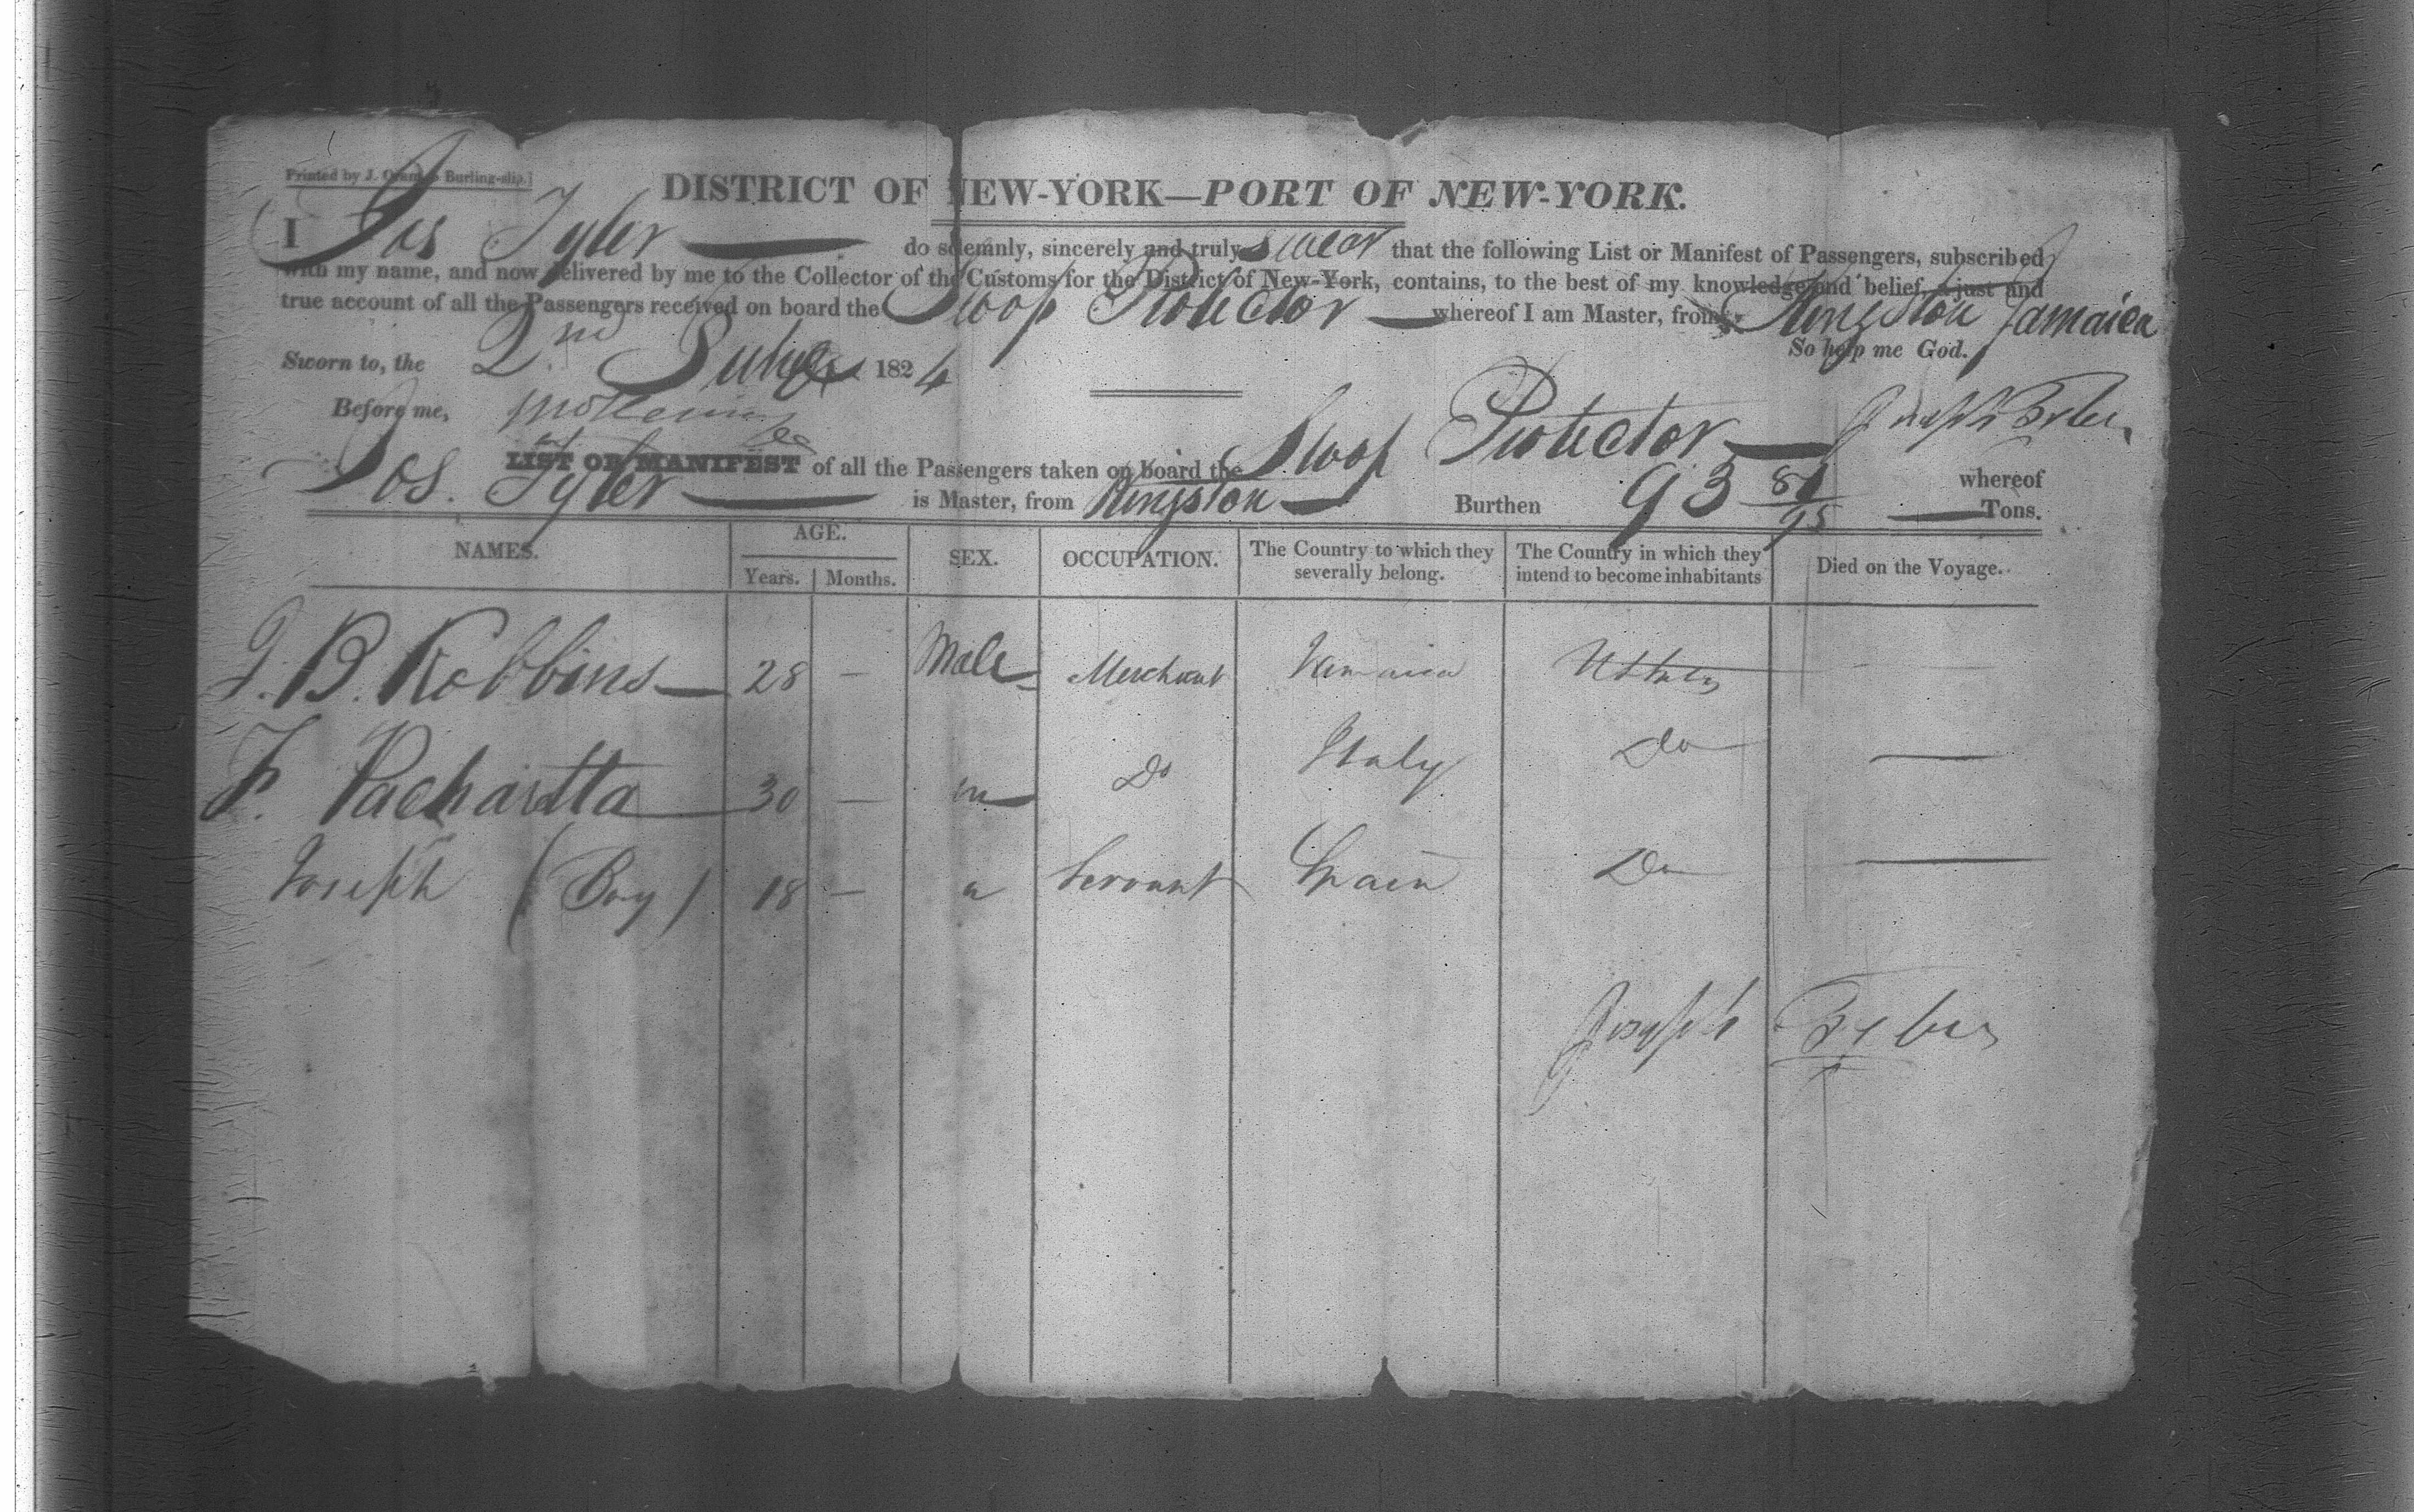 Printed by J. Oram Burling-slip.]
DISTRICT OF NEW-YORK—PORT OF NEW-YORK.
I Jos Tyler do solemnly, sincerely and truly swear that the following List or Manifest of Passengers, subscribed
with my name, and now delivered by me to the Collector of the Customs for the District of New-York, contains, to the best of my knowledge and belief, a just and
true account of all the Passengers received on board the Sloop Protector — whereof I am Master, from Kingston Jamaica
So help me God.
Sworn to, the 2nd 1824
Before me,
Joseph Tyler
LIST OR MANIFEST of all the Passengers taken on board the Sloop Protector — whereof
Jos. Tyler is Master, from Kingston — Burthen 93 /95 Tons.
NAMES. AGE. Years. Months. SEX. OCCUPATION. The Country to which they severally belong. The Country in which they intend to become inhabitants Died on the Voyage.
J. B. Robbins 28 — Male Merchant Jamaica UStates —
F. Pachaitta 30 — m Do Italy Do —
Joseph (Boy) 18 — Servant Spain Do —
Joseph Tyler